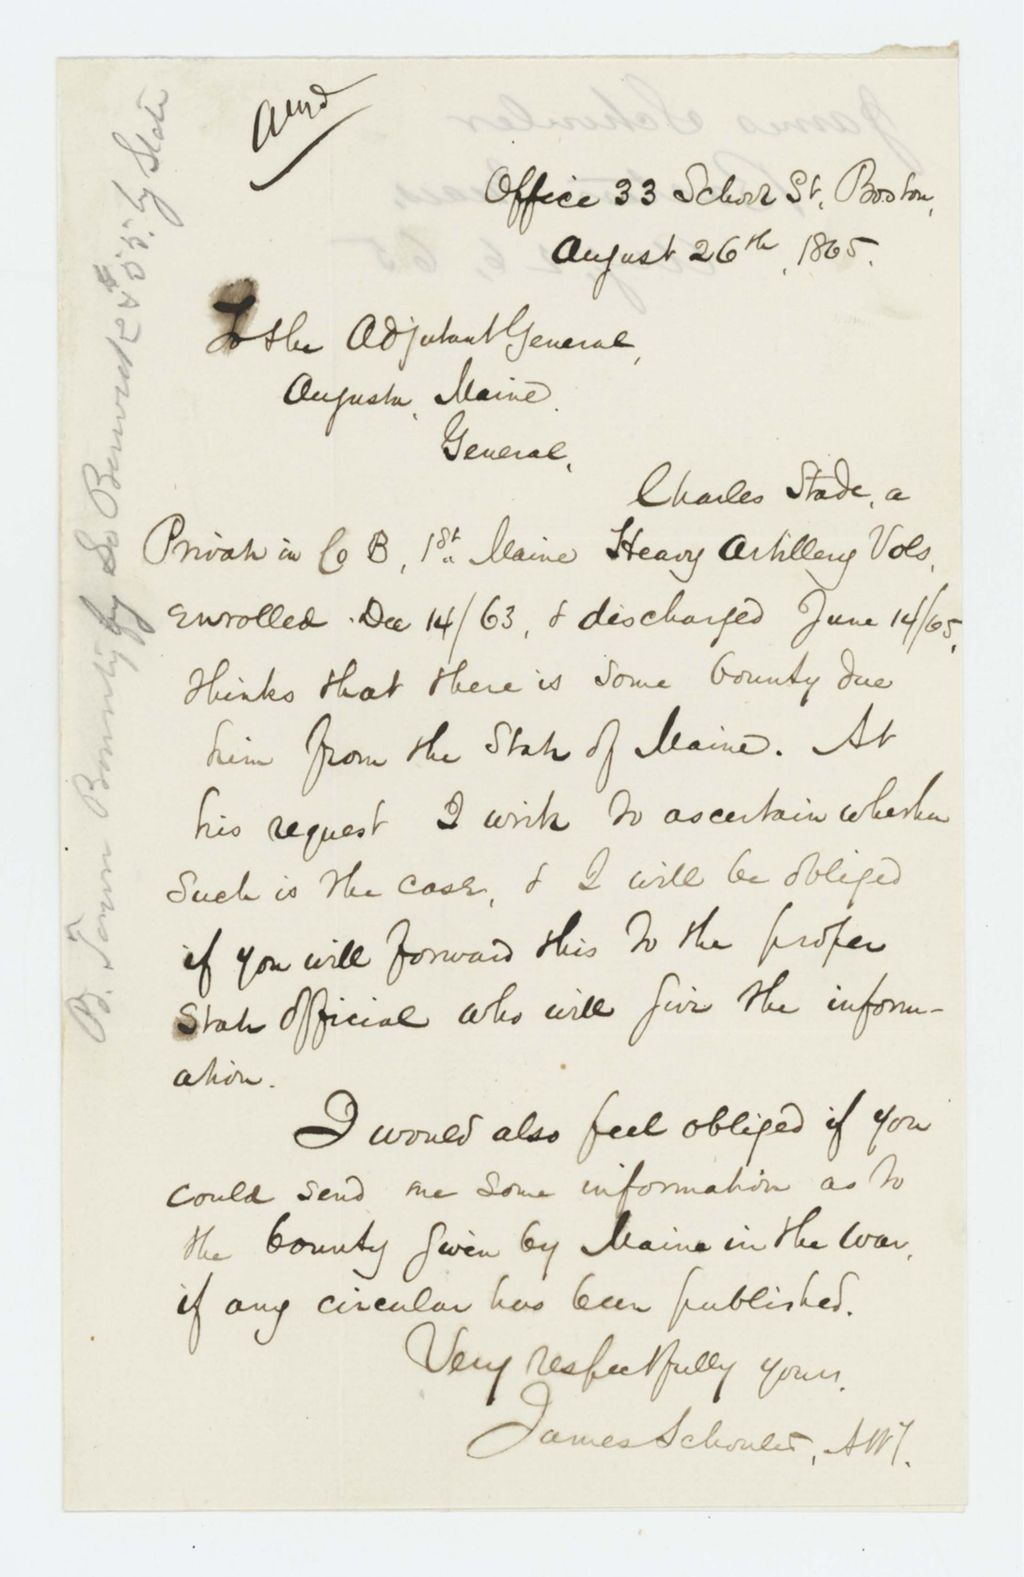 Ansd
Office 33 School St, Boston,
August 26th, 1865.
To the Adjutant General,
Augusta, Maine.
General,
Charles Stade, a
Private in Co B, 1st Maine Heavy Artillery Vols,
enrolled Dec 14/63, & discharged June 14/65,
thinks that there is some bounty due
him from the State of Maine. At
his request I write to ascertain whether
such is the case, & I will be obliged
if you will forward this to the proper
State official who will give the inform-
ation.
I would also feel obliged if you
could send me some information as to
the bounty given by Maine in the war,
if any circular has been published.
Very respectfully yours,
James Schouler, Atty.
B. Town Bounty by So Berwick & $55. by State
James Schouler
Boston, Mass
Aug 26, 65